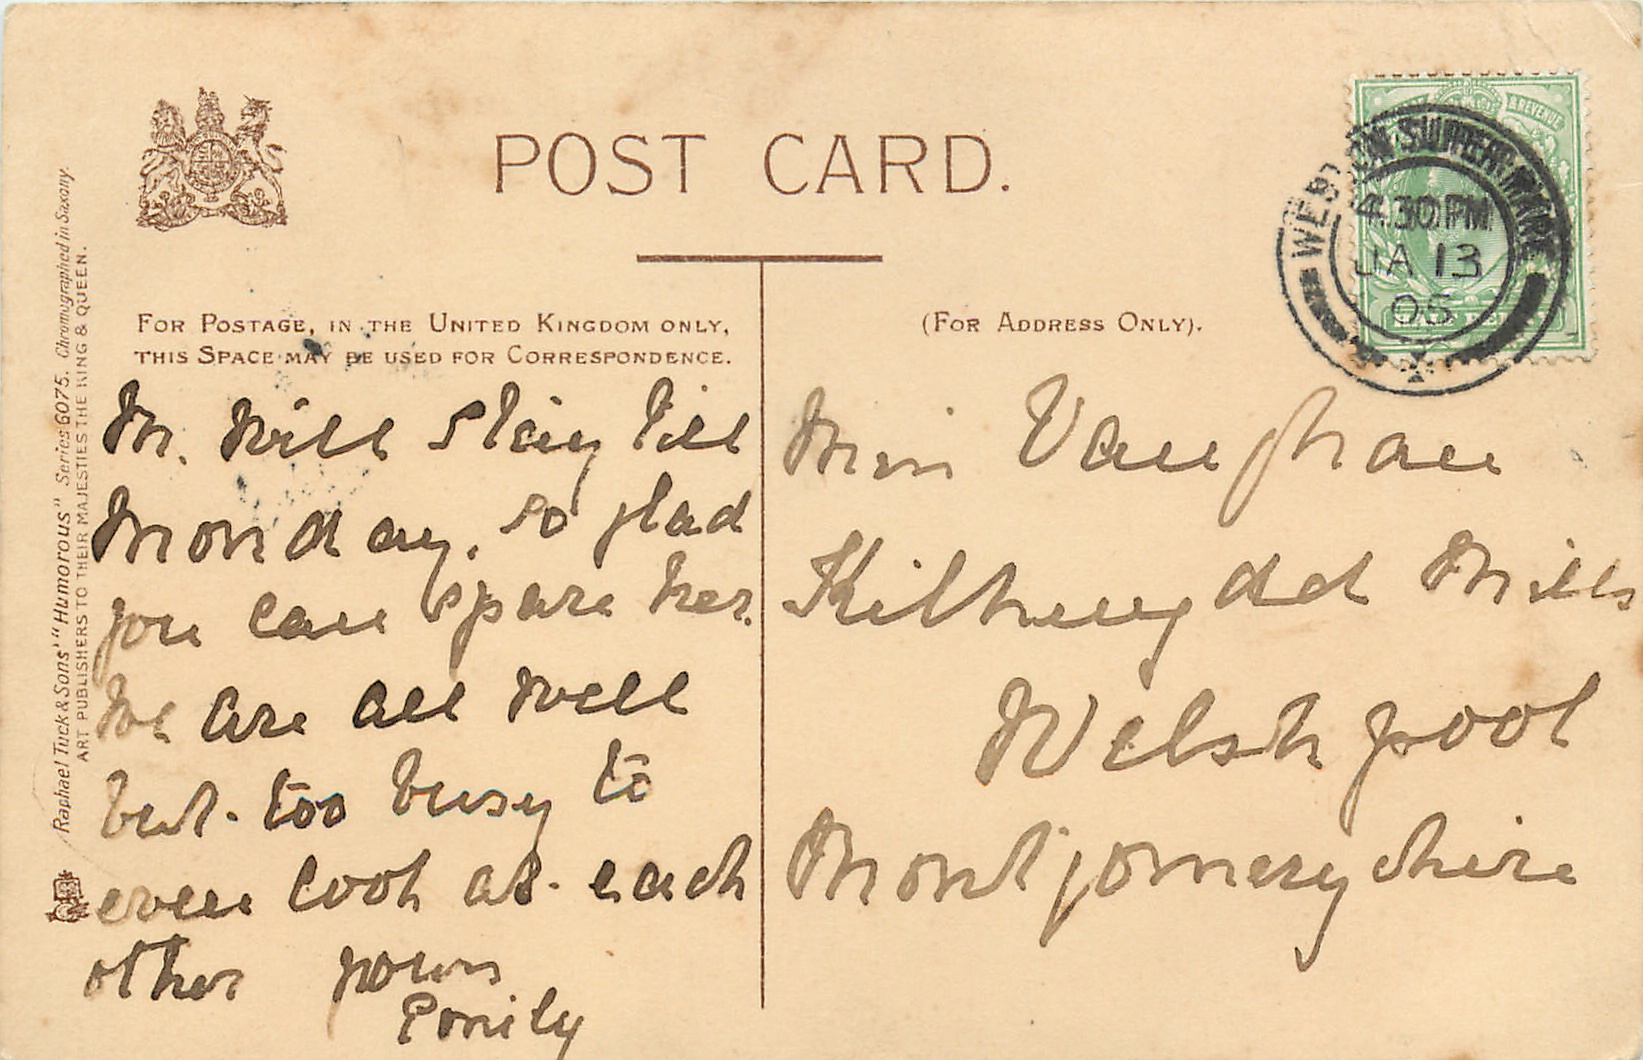 POST CARD.
FOR POSTAGE, IN THE UNITED KINGDOM ONLY,
THIS SPACE MAY BE USED FOR CORRESPONDENCE.
(FOR ADDRESS ONLY).
M. Will stay till
Monday, so glad
you can spare her.
We are all well
but too busy to
even look at each
other yours
Emily
Miss Vaughan
Kilkewydd Mills
Welshpool
Montgomeryshire
& REVENUE
WESTON-SUPER-MARE
4.30PM
JA 13
05
Raphael Tuck & Sons' "Humorous" Series 6075. Chromographed in Saxony.
ART PUBLISHERS TO THEIR MAJESTIES THE KING & QUEEN.